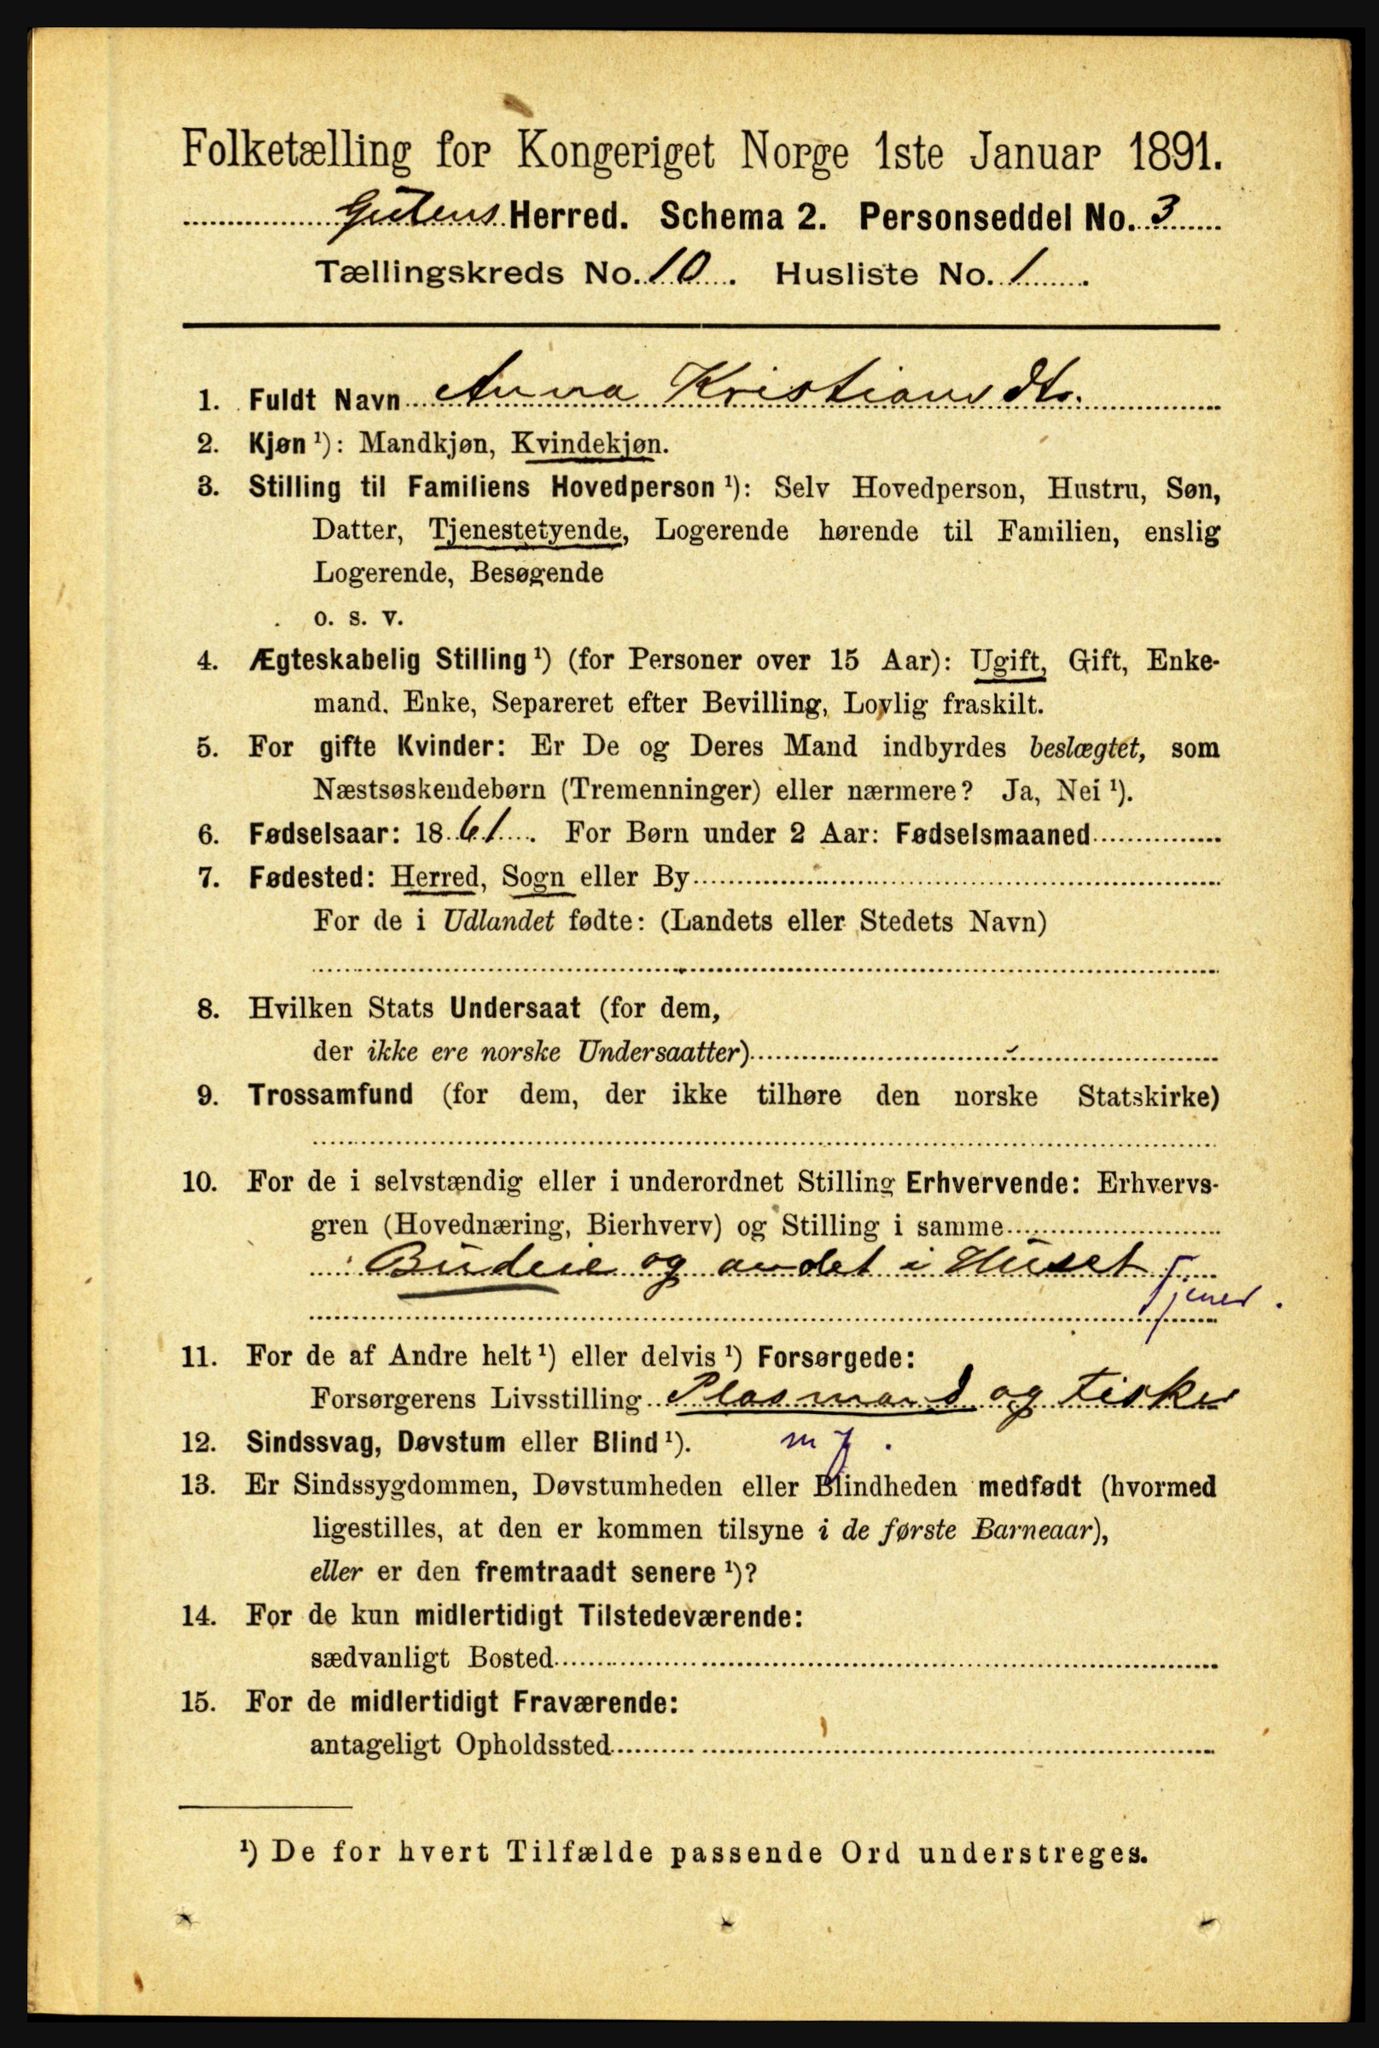 Folketælling for Kongeriget Norge 1ste Januar 1891.
Gulens Herred. Schema 2. Personseddel No. 3
Tællingskreds No. 10. Husliste No. 1
1. Fuldt Navn Anna Kristiansdtr.
2. Kjøn ¹): Mandkjøn, Kvindekjøn.
3. Stilling til Familiens Hovedperson ¹): Selv Hovedperson, Hustru, Søn,
Datter, Tjenestetyende, Logerende hørende til Familien, enslig
Logerende, Besøgende
o. s. v.
4. Ægteskabelig Stilling ¹) (for Personer over 15 Aar): Ugift, Gift, Enke-
mand, Enke, Separeret efter Bevilling, Lovlig fraskilt.
5. For gifte Kvinder: Er De og Deres Mand indbyrdes beslægtet, som
Næstsøskendebørn (Tremenninger) eller nærmere? Ja, Nei ¹).
6. Fødselsaar: 1861. For Børn under 2 Aar: Fødselsmaaned
7. Fødested: Herred, Sogn eller By
For de i Udlandet fødte: (Landets eller Stedets Navn)
8. Hvilken Stats Undersaat (for dem,
der ikke ere norske Undersaatter)
9. Trossamfund (for dem, der ikke tilhøre den norske Statskirke)
10. For de i selvstændig eller i underordnet Stilling Erhvervende: Erhvervs-
gren (Hovednæring, Bierhverv) og Stilling i samme
Budeie og andet i Huset
Tjener.
11. For de af Andre helt ¹) eller delvis ¹) Forsørgede:
Forsørgerens Livsstilling Plasmand og Fisker
12. Sindssvag, Døvstum eller Blind ¹). m j.
13. Er Sindssygdommen, Døvstumheden eller Blindheden medfødt (hvormed
ligestilles, at den er kommen tilsyne i de første Barneaar),
eller er den fremtraadt senere ¹)?
14. For de kun midlertidigt Tilstedeværende:
sædvanligt Bosted
15. For de midlertidigt Fraværende:
antageligt Opholdssted
¹) De for hvert Tilfælde passende Ord understreges.